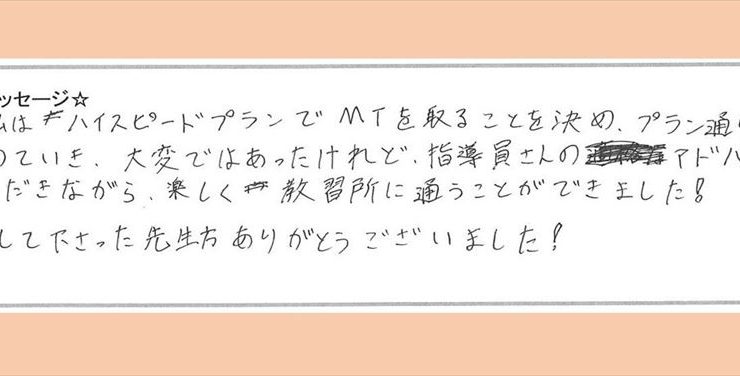 ッセージ☆
ムは ハイスピードプランで MTを取ることを決め、プラン通り
っていき、大変ではあったけれど、指導員さんの アドバ
だきながら、楽しく 教習所に通うことができました!
して下さった先生方ありがとうございました!